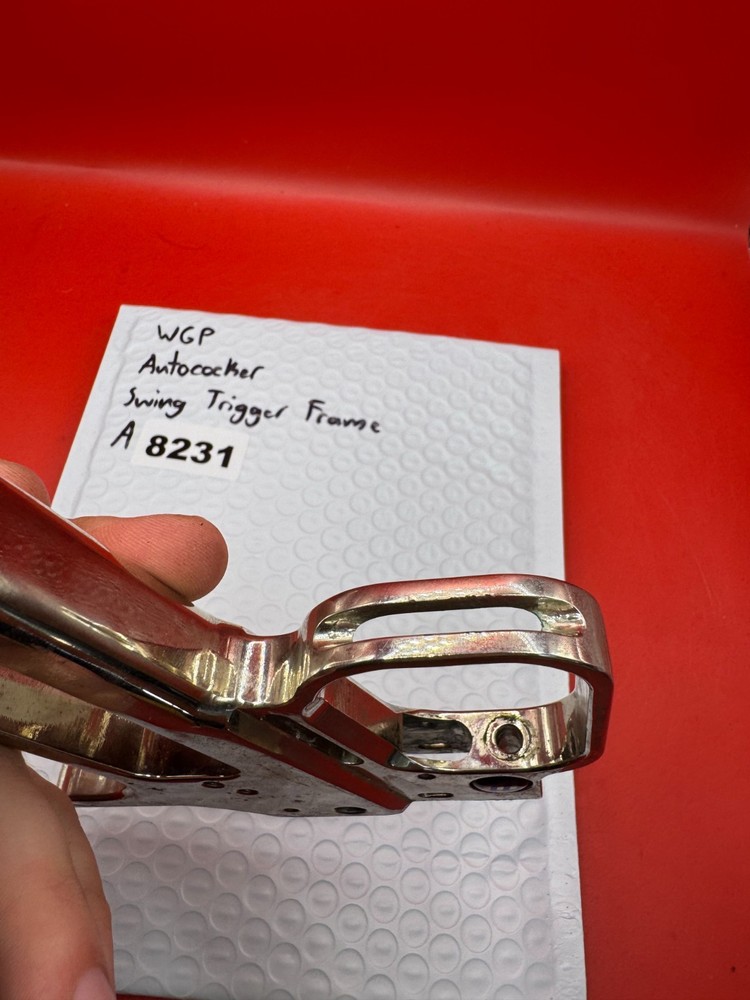 WGP
Autococker
Swing Trigger Frame
A 8231